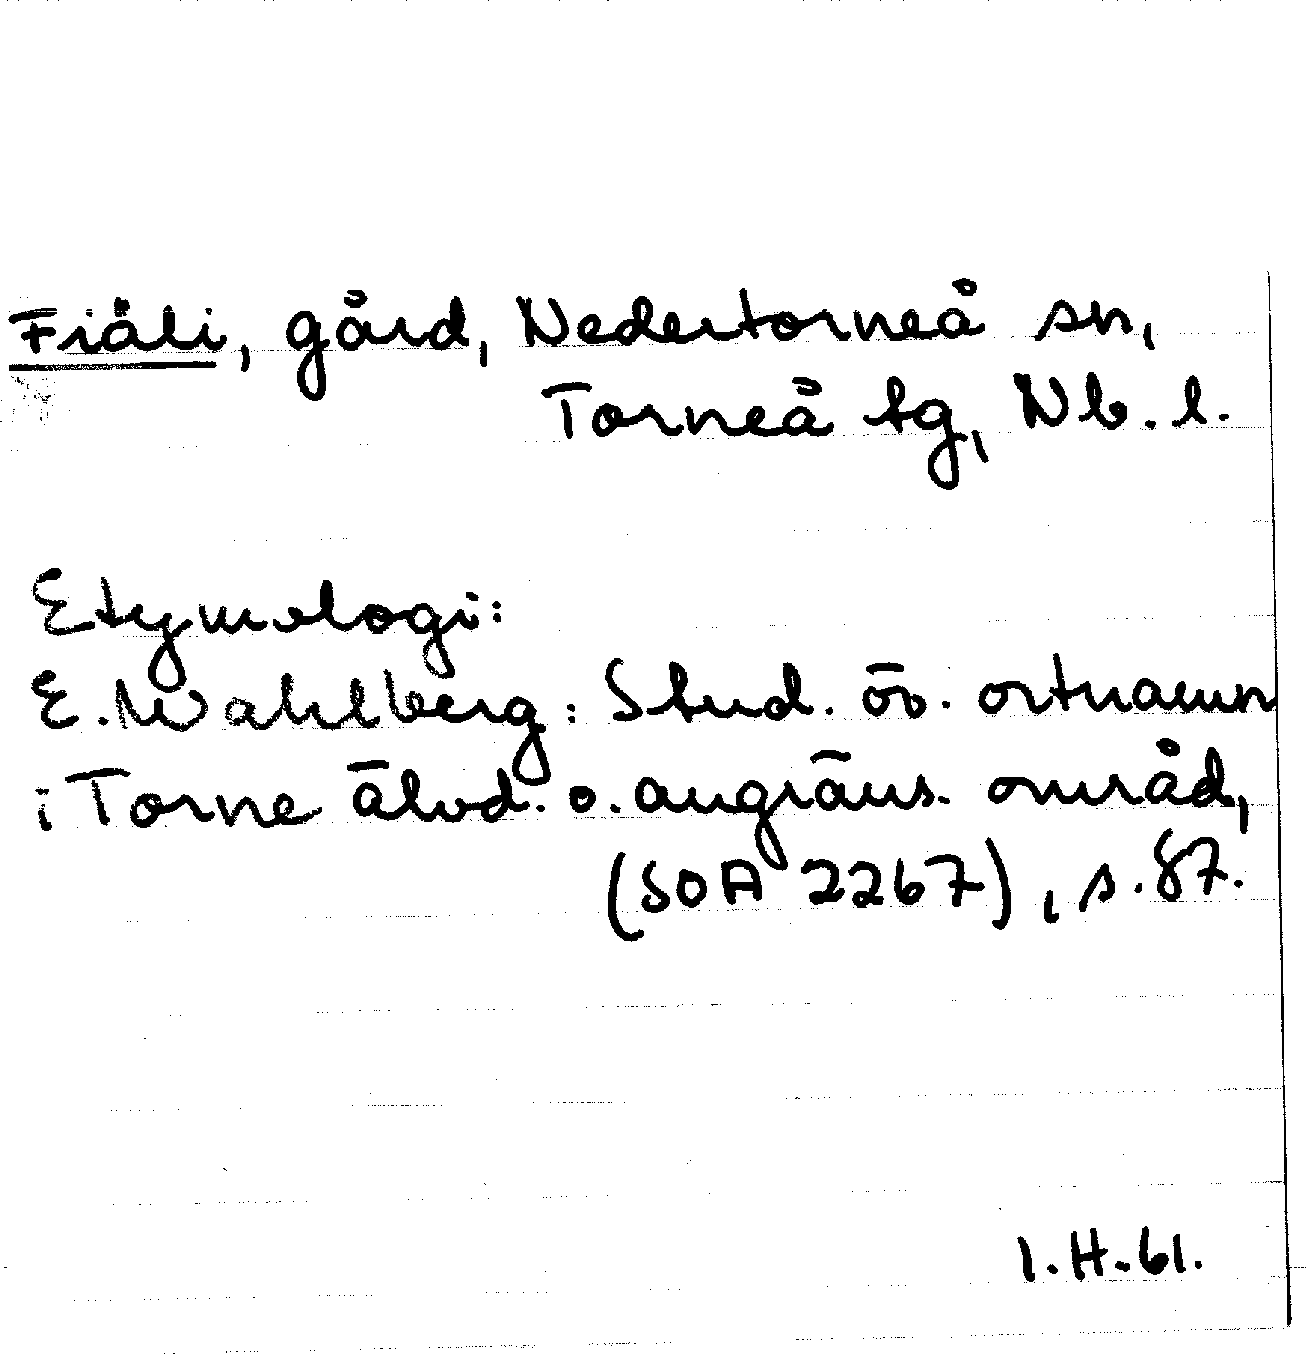 Fiäli, gård, Nedertorneå sn,
Torneå tg, Nb. l.
Etymologi:
E. Wahlberg: Stud. öv. ortnamn
i Torne älvd. o. angräns. områd,
(SOA 2267), s. 87.
I.H.61.